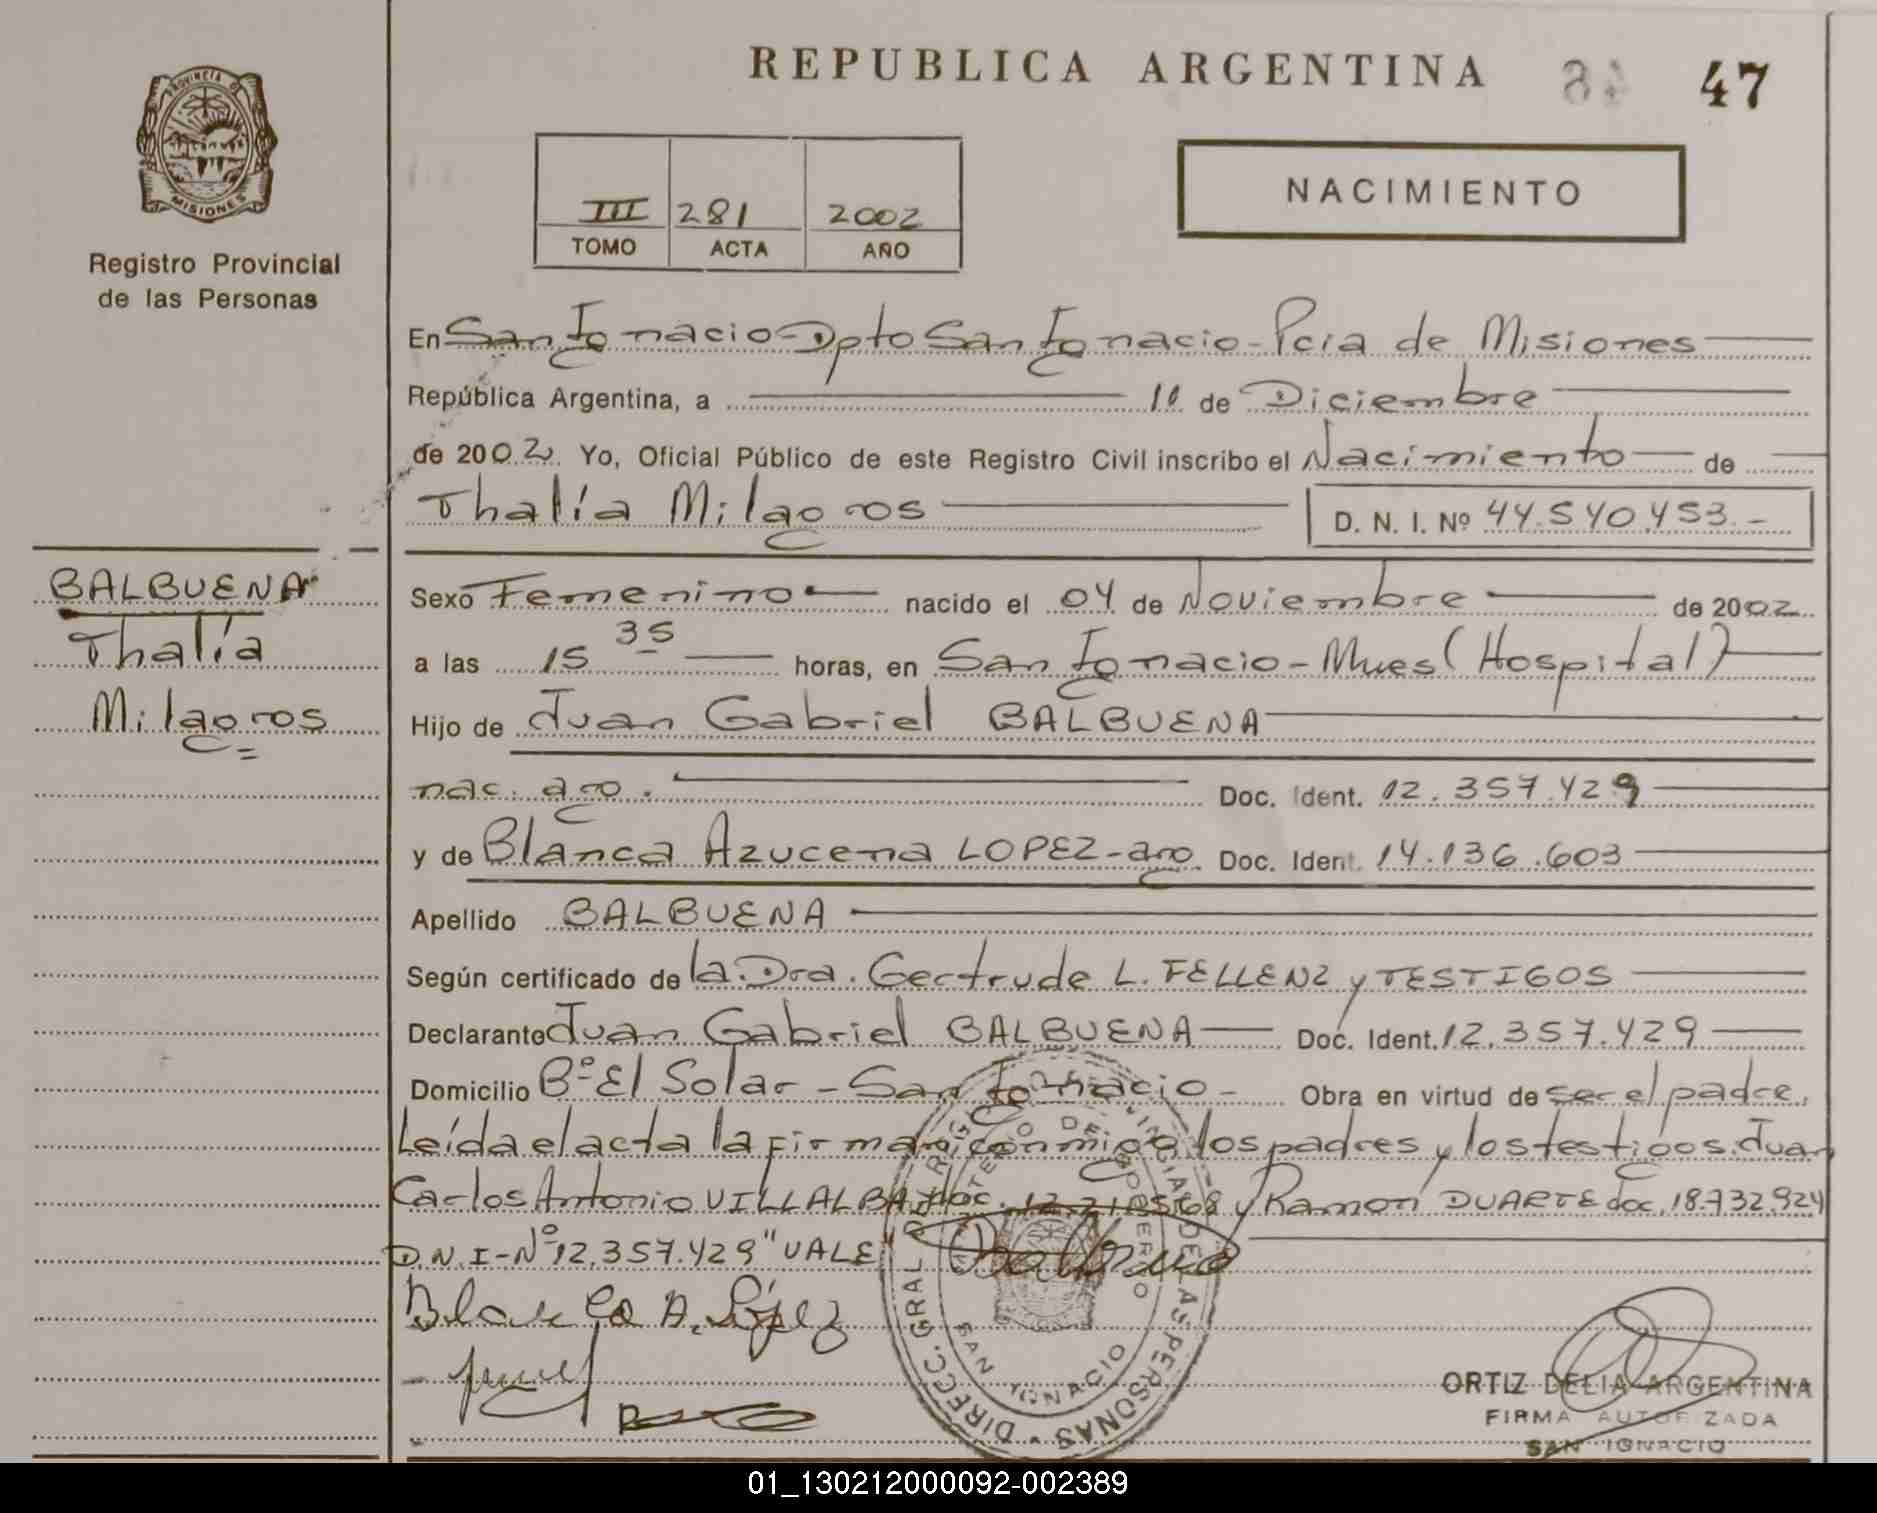 REPUBLICA ARGENTINA 47
PROVINCIA D MISIONES
Registro Provincial
de las Personas
III 281 2002
TOMO ACTA AÑO
NACIMIENTO
En San Ignacio - Dpto San Ignacio - Pcia de Misiones
República Argentina, a 10 de Diciembre
de 2002. Yo, Oficial Público de este Registro Civil inscribo el Nacimiento de
Thalía Milagros D. N. I. Nº 44.540.453.-
BALBUENA
Thalía
Milagros
Sexo Femenino nacido el 04 de Noviembre de 2002
a las 15 35 horas, en San Ignacio - Mnes (Hospital)
Hijo de Juan Gabriel BALBUENA
nac. arg. Doc. Ident. 12.357.429
y de Blanca Azucena LOPEZ - arg. Doc. Ident. 14.136.603
Apellido BALBUENA
Según certificado de la Dra. Gertrude L. FELLENZ y TESTIGOS
Declarante Juan Gabriel BALBUENA Doc. Ident. 12.357.429
Domicilio Bº El Solar - San Ignacio - Obra en virtud de ser el padre.
Leída el acta la firman conmigo los padres y los testigos. Juan
Carlos Antonio VILLALBA doc. y Ramon DUARTE doc. 18.732.924
D.N.I - Nº 12.357.429 "VALE"
Blanca A. López
DIRECC. GRAL PROVINCIAL DE LAS PERSONAS
SAN IGNACIO
ORTIZ DELIA ARGENTINA
FIRMA AUTORIZADA
SAN IGNACIO
01_130212000092-002389